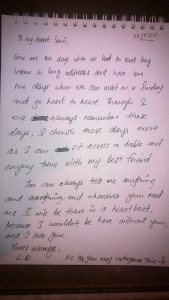 To my dearest Sani,
Gone are the days when we had to send long
letters to long addresses and here are
the days when we can meet on a Sunday
and go heart to heart. Though I
will always remember those
days, I cherish these days more
as I can sit across a table and
enjoy time with my best friend.
You can always tell me anything
and everything and whenever you need
me I will be there in a heartbeat,
because I wouldn't be here without you,
and I love you.
Yours always,
L.D.
you may instagram this